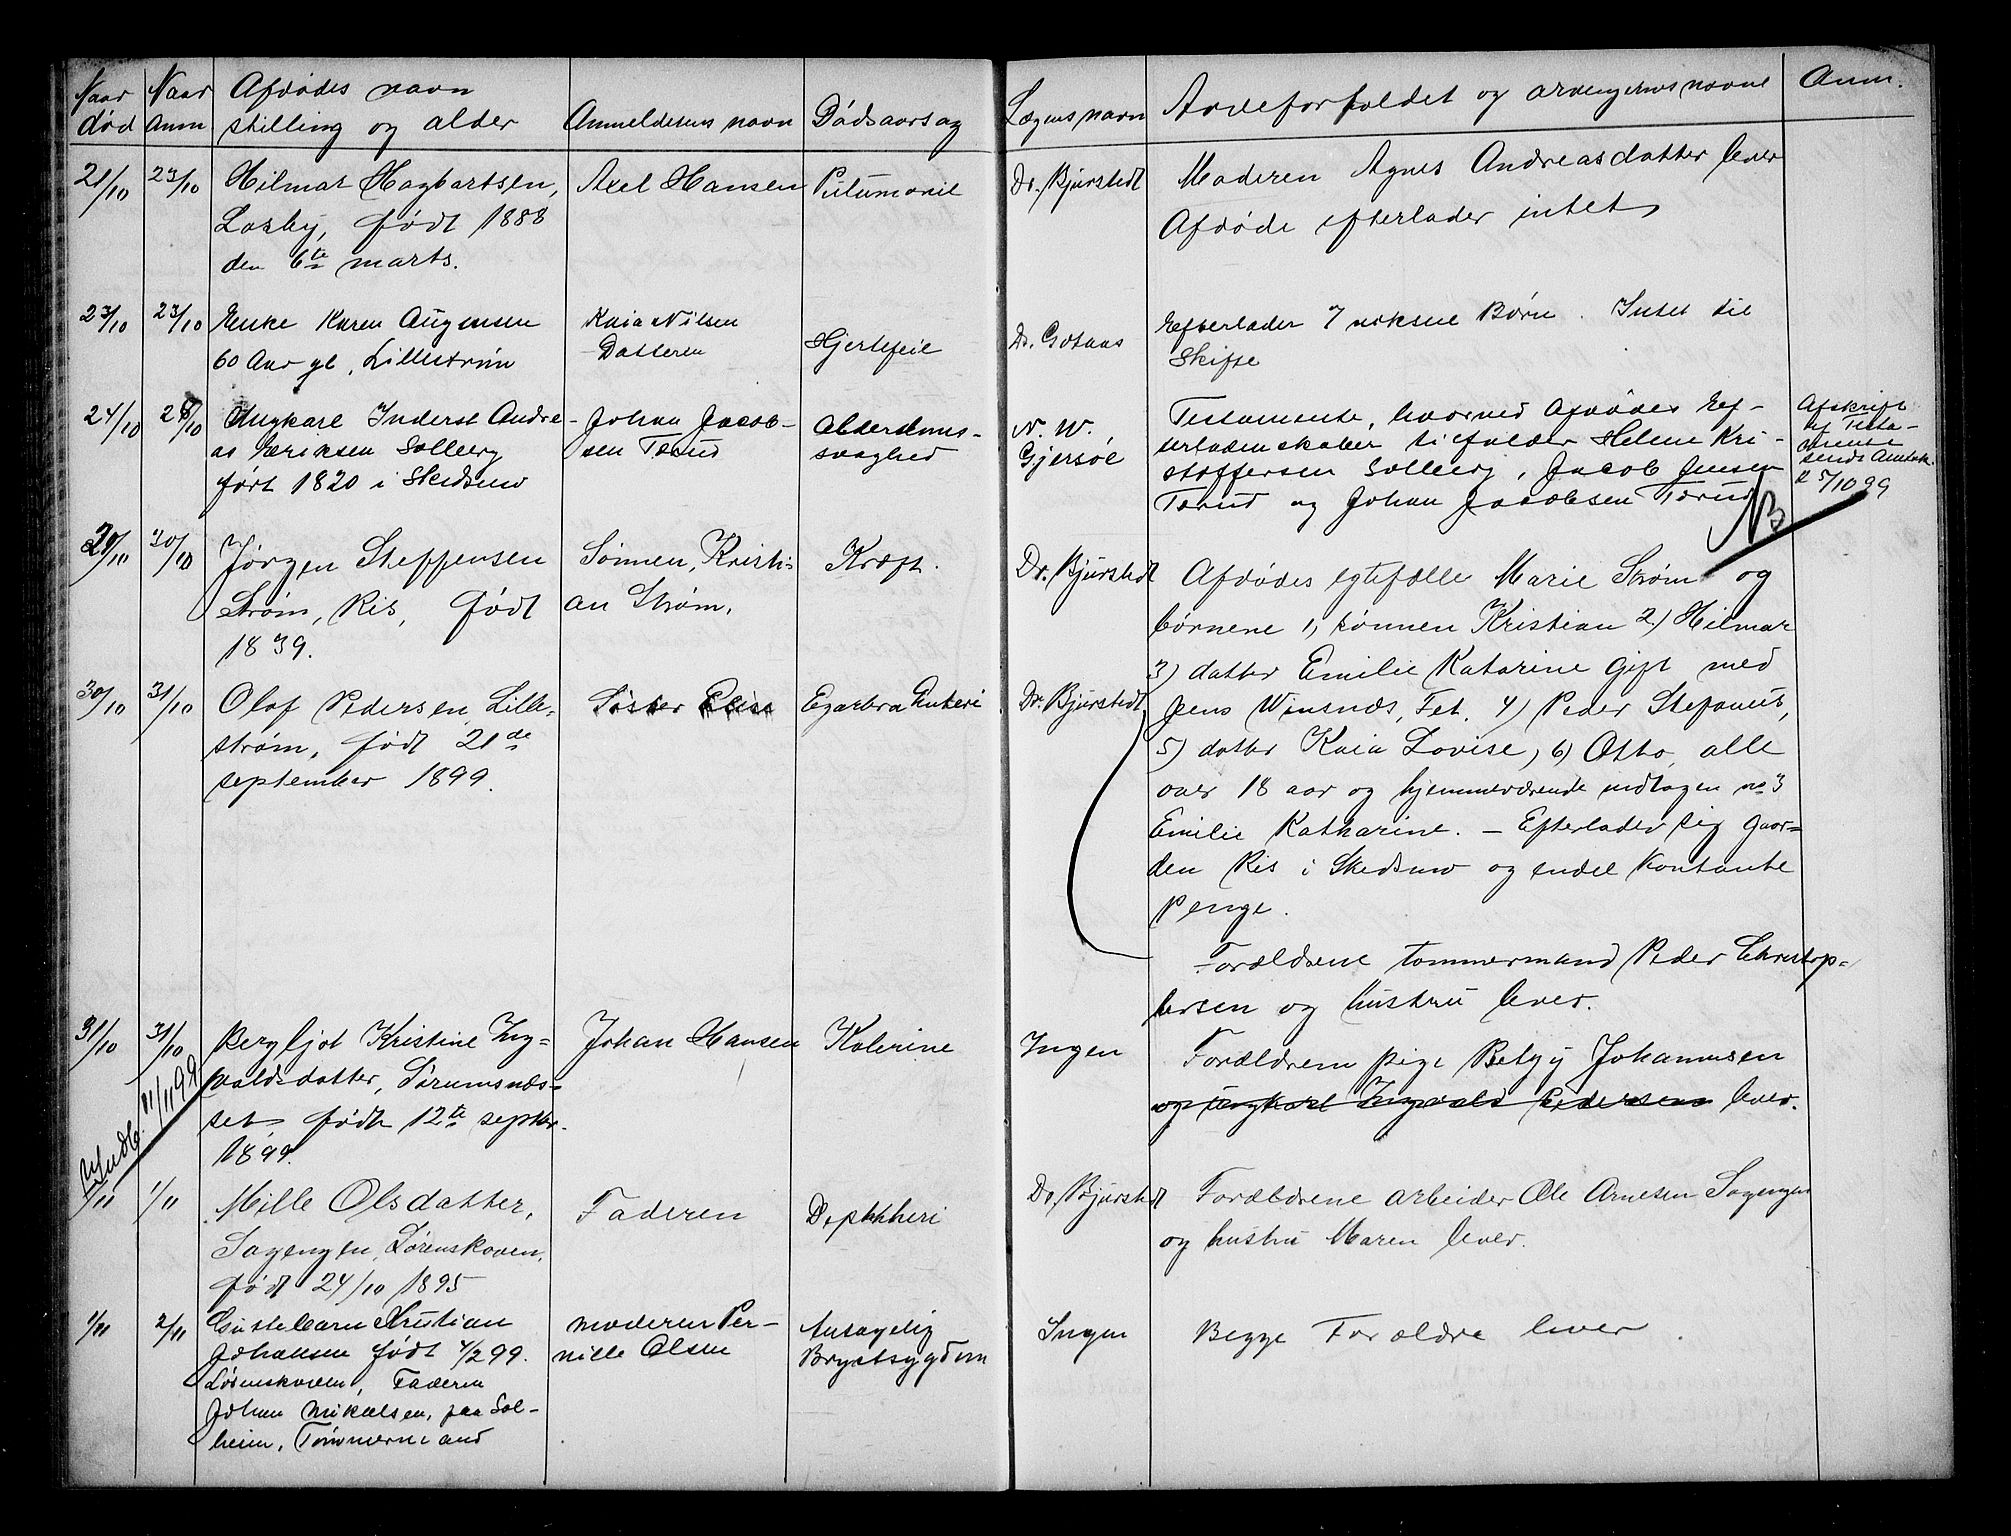 Naar død
Naar Anm
Afdødes navn
stilling og alder
Anmelderens navn
Dødsaarsag
Lægens navn
Arveforholdet og arvingernes navne
Anm.
21/10
23/10
Hilmar Hagbartsen,
Losby, født 1888
den 6te marts.
Axel Hansen
Pneumonie
Dr. Bjurstedt
Moderen Agnes Andreasdatter lever
Afdøde efterlader intet
23/10
23/10
Enke Karen Augensen
60 Aar gl, Lillestrøm
Kaia Nilsen
Datteren
Hjertefeil
Dr. Gotaas
Efterlader 7 voksne Børn. Intet til
Skifte
24/10
28/10
Ungkarl Inderst Andre-
as Eriksen Solberg
født 1820 i Skedsmo
Johan Jacob-
sen Tærud
Alderdoms-
svaghed
N. W.
Gjersøe
Testamente, hvorved Afdødes Ef-
terladenskaber tilfalder Helene Kri-
stoffersen Solberg, Jacob Jensen
Tærud og Johan Jacobsen Tærud
NB
Afskrift
af Testa-
mente
sendt Amtsk.
d 5/10 99
29/10
30/10
Jørgen Steffensen
Strøm, Ris, født
1839.
Sønnen, Kristi-
an Strøm.
Kræft.
Dr. Bjurstedt
Afdødes egtefælle Marie Strøm og
børnene 1, sønnen Kristian 2) Hilmar
3) datter Emilie Katarine gift med
Jens Winsnæs, Fet. 4) Peder Stefanus,
5) datter Kaia Lovise, 6) Otto, alle
over 18 aar og hjemmeværende undtagen no 3
Emilie Katharine. – Efterlader sig gaar-
den Ris i Skedsmo og endel kontante
Penge.
30/10
31/10
Olaf Pedersen Lille-
strøm, født 21de
september 1899.
Søster Elise
Dr. Bjurstedt
Forældrene tømmermand Peder Christop-
hersen og hustru lever.
31/10
31/10
Bergljot Kristine Ing-
valdsdatter, Sørumsnæs-
set, født 12te septbr.
1899.
Johan Hansen
Kolerine
Ingen
Forældrene pige Betzy Johannesen
og ungkarl Ingvald Pedersen lever.
Indb. 11/11 99
1/11
1/11
Mille Olsdatter,
Sagengen, Lørenskoven,
født 24/10 1895
Faderen
Dephtheri
Dr. Bjurstedt
Forældrene arbeider Ole Arnesen Sagengen
og hustru Maren lever.
1/11
2/11
Gustebarn Kristian
Johansen født 4/2 99.
Lørenskoven, Faderen
Johan Mikalsen, paa Sol-
heim, Tømmermand
Moderen Per-
nille Olsen
Antagelig
Brystsygdom
Ingen
Begge Forældre lever.